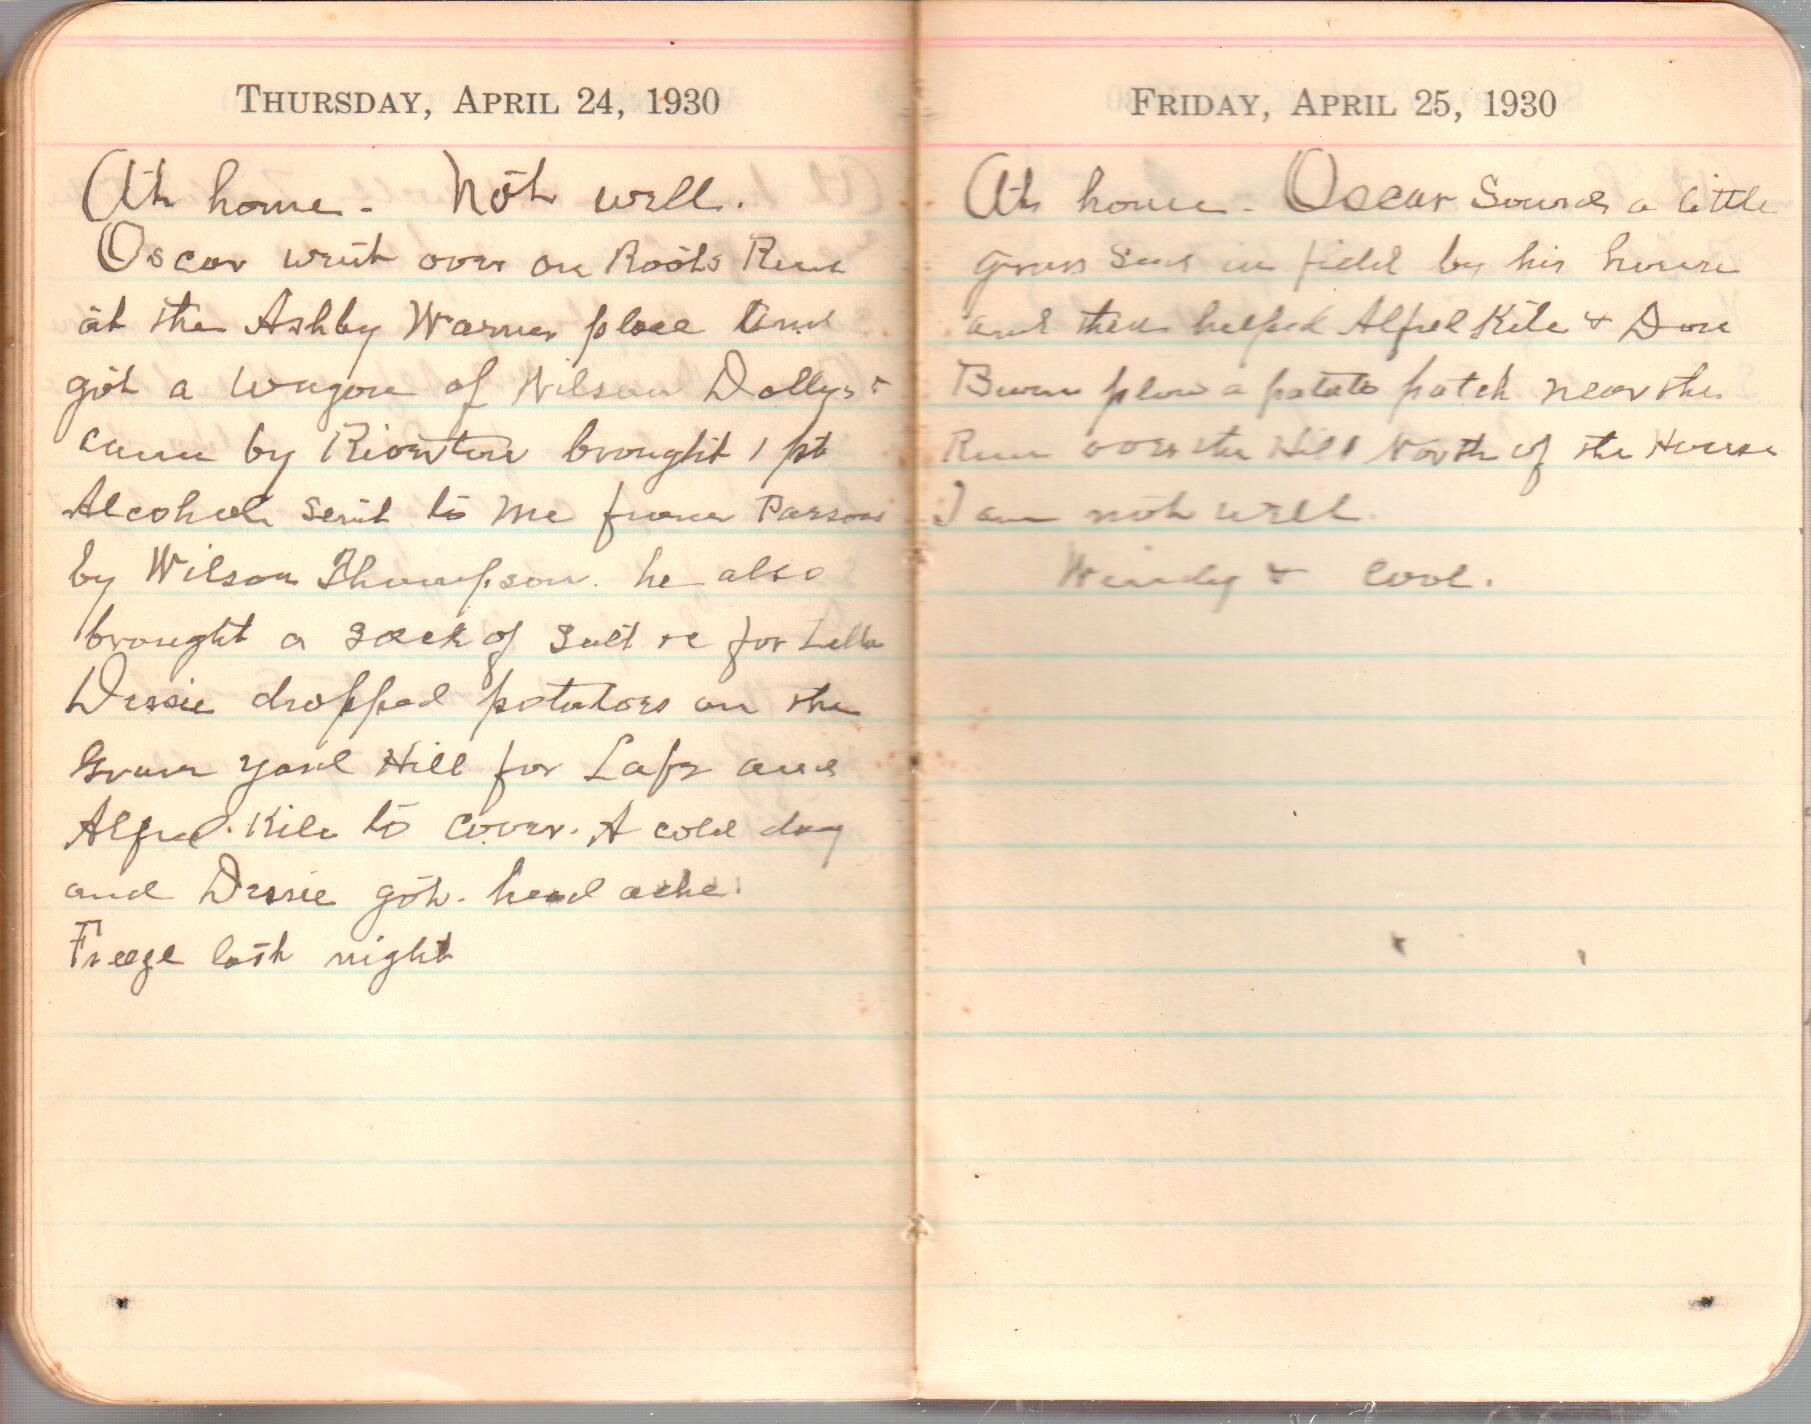 THURSDAY, APRIL 24, 1930
At home. Not well.
Oscar went over on Roots Run
at the Ashby Warner place and
got a wagon of Wilson Dollys &
came by Riverton brought 1 pt
Alcohol sent to me from Parsons
by Wilson Thompson. he also
brought a sack of salt for Lella
Dessie dropped potatoes on the
Grave yard Hill for Lafe and
Alfred Kile to cover. A cold day
and Dessie got head ache.
Freeze last night
FRIDAY, APRIL 25, 1930
At home. Oscar Sowed a little
grass seed in field by his house
and then helped Alfred Kile & Don
plow a potato patch near the
Run over the Hill North of the House
I am not well.
Windy & cool.